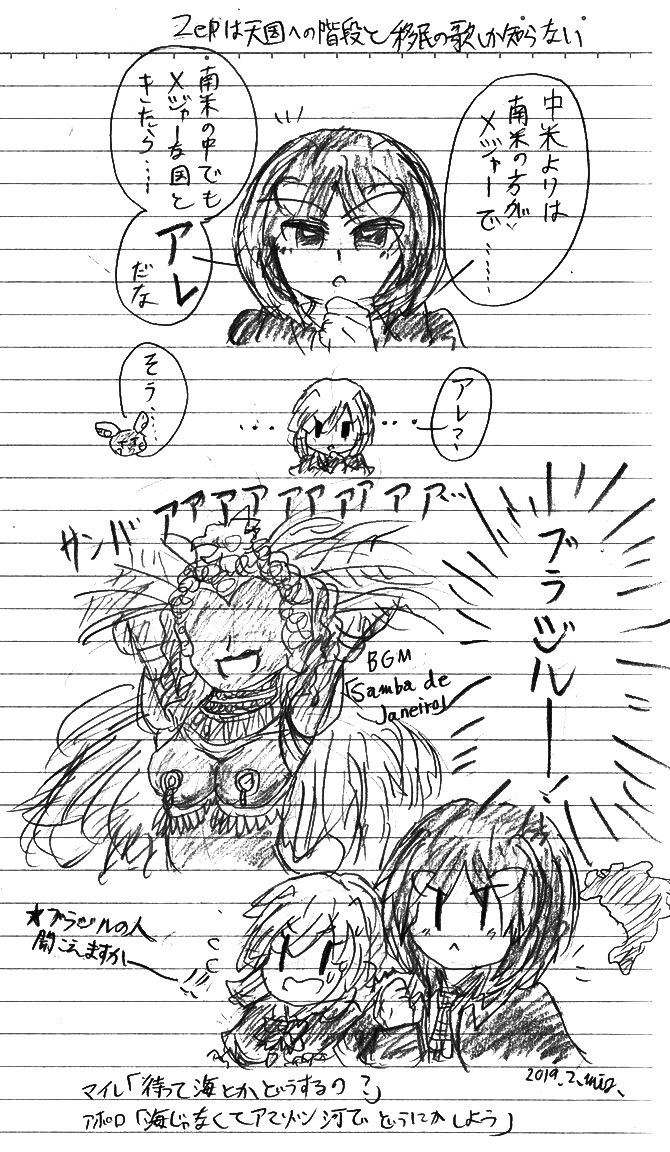 Zepは天国への階段と移民の歌しか知らない
中米よりは
南米の方が
メジャーで……
南米の中でも
メジャーな国と
きたら……
アレ
だな
アレ？
そう……
サンバ
アァアァアァアァアァ…
ブラジルー！
BGM
「Samba de
Janeiro」
★ブラジルの人
聞こえますかー
2019.2.
マイレ「待って海とかどうするの？」
アポロ「海じゃなくてアマゾン河でどうにかしよう」